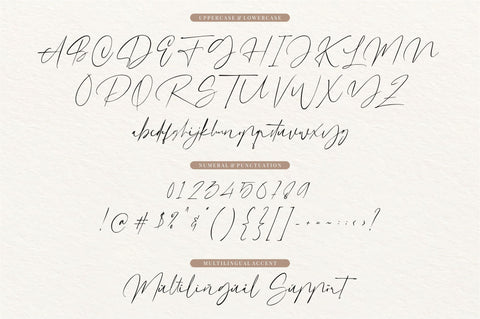 UPPERCASE & LOWERCASE
ABCDEFGHIJKLMN
OPQRSTUVWXYZ
abcdefghijklmnopqrstuvwxyz
NUMERAL & PUNCTUATION
0123456789
!@#$%^&*(){}[]-+=:;<>?
MULTILINGUAL ACCENT
Multilingual Support